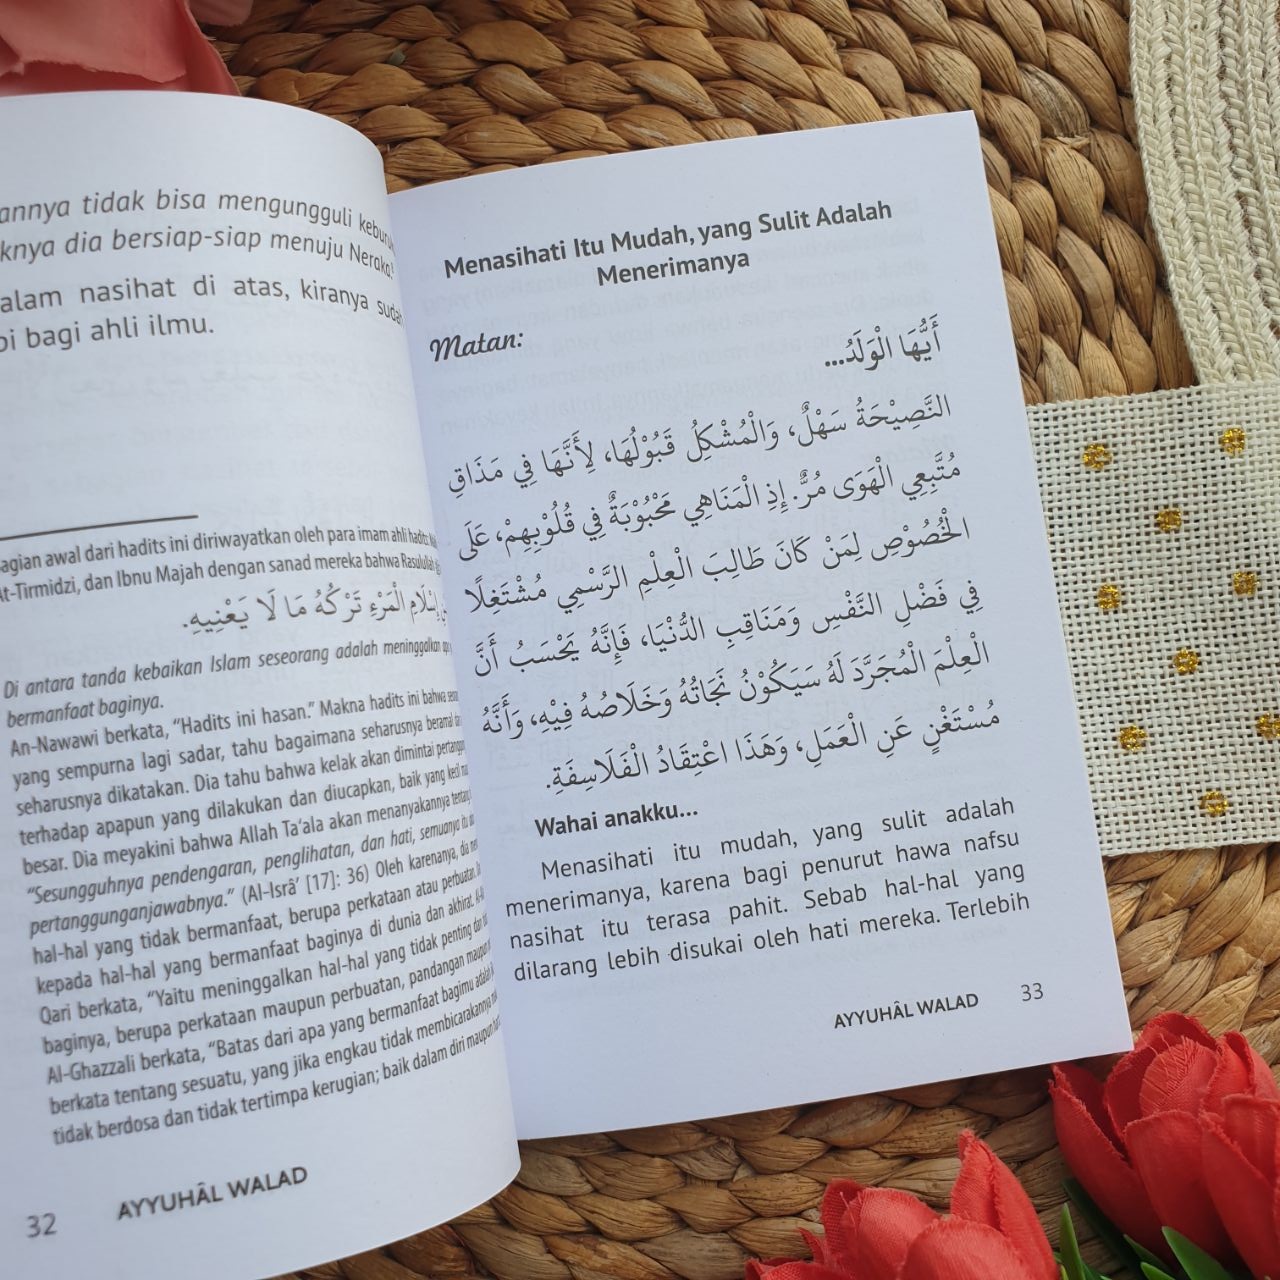 annya tidak bisa mengungguli
knya dia bersiap-siap menuju Neraka.
alam nasihat di atas, kiranya sudah
bagi ahli ilmu.
agian awal dari hadits ini diriwayatkan oleh para imam ahli hadits:
At-Tirmidzi, dan Ibnu Majah dengan sanad mereka bahwa Rasulullah
إِسْلَامِ الْمَرْءِ تَرْكُهُ مَا لَا يَعْنِيهِ.
Di antara tanda kebaikan Islam seseorang adalah meninggalkan
bermanfaat baginya.
An-Nawawi berkata, “Hadits ini hasan.” Makna hadits ini bahwa
yang sempurna lagi sadar, tahu bagaimana seharusnya beramal
seharusnya dikatakan. Dia tahu bahwa kelak akan dimintai
terhadap apapun yang dilakukan dan diucapkan, baik yang kecil
besar. Dia meyakini bahwa Allah Ta‘ala akan menanyakannya tentang
“Sesungguhnya pendengaran, penglihatan, dan hati, semuanya itu
pertanggunganjawabnya.” (Al-Isrâ’ [17]: 36) Oleh karenanya, dia
hal-hal yang tidak bermanfaat, berupa perkataan atau perbuatan.
kepada hal-hal yang bermanfaat baginya di dunia dan akhirat.
Qari berkata, “Yaitu meninggalkan hal-hal yang tidak penting
baginya, berupa perkataan maupun perbuatan, pandangan maupun
Al-Ghazzali berkata, “Batas dari apa yang bermanfaat bagimu adalah
berkata tentang sesuatu, yang jika engkau tidak membicarakannya
tidak berdosa dan tidak tertimpa kerugian; baik dalam diri maupun
32 AYYUHÂL WALAD
Menasihati Itu Mudah, yang Sulit Adalah
Menerimanya
Matan:
أَيُّهَا الْوَلَدُ...
النَّصِيْحَةُ سَهْلٌ، وَالْمُشْكِلُ قَبُوْلُهَا، لِأَنَّهَا فِي مَذَاقِ
مُتَّبِعِي الْهَوَى مُرٌّ. إِذِ الْمَنَاهِي مَحْبُوْبَةٌ فِي قُلُوْبِهِمْ، عَلَى
الْخُصُوْصِ لِمَنْ كَانَ طَالِبَ الْعِلْمِ الرَّسْمِي مُشْتَغِلًا
فِي فَضْلِ النَّفْسِ وَمَنَاقِبِ الدُّنْيَا، فَإِنَّهُ يَحْسَبُ أَنَّ
الْعِلْمَ الْمُجَرَّدَ لَهُ سَيَكُوْنُ نَجَاتُهُ وَخَلَاصُهُ فِيْهِ، وَأَنَّهُ
مُسْتَغْنٍ عَنِ الْعَمَلِ، وَهَذَا اعْتِقَادُ الْفَلَاسِفَةِ.
Wahai anakku...
Menasihati itu mudah, yang sulit adalah
menerimanya, karena bagi penurut hawa nafsu
nasihat itu terasa pahit. Sebab hal-hal yang
dilarang lebih disukai oleh hati mereka. Terlebih
AYYUHÂL WALAD 33